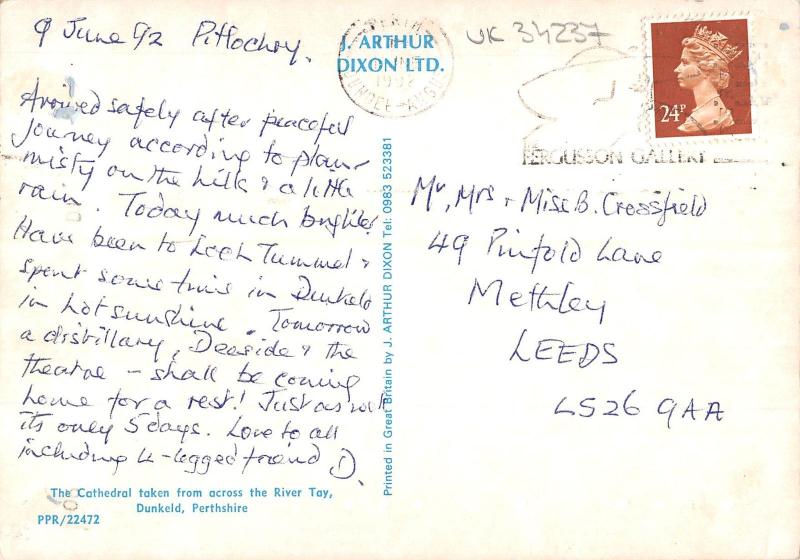 9 June 92 Pitlochry.
Arrived safely after peaceful
journey according to plan -
misty on the hills & a little
rain. Today much brighter
Have been to Loch Tummel &
spent some time in Dunkeld
in hot sunshine. Tomorrow
a distillary, Deeside & the
theatre - shall be coming
home for a rest! Just as well
its only 5 days. Love to all
including 4-legged friend D.
The Cathedral taken from across the River Tay,
Dunkeld, Perthshire
PPR/22472
J. ARTHUR
DIXON LTD.
Printed in Great Britain by J. ARTHUR DIXON Tel: 0983 523381
PERTH
1992
UK 34237
24P
FERGUSSON GALLERY
Mr, Mrs & Miss B. Crossfield
49 Pinfold Lane
Methley
LEEDS
LS26 9AA